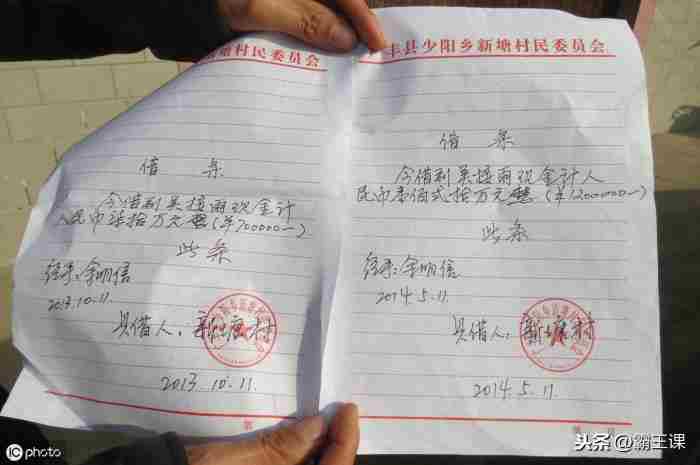 村民委员会
借条
今借到吴
现金计
人民币柒拾万元整(￥700000—)
此条
经手:余明信
2013.10.11.
具借人:新塘村
2013.10.11.
第
丰县少阳乡新塘村民委员会
借条
今借到吴
现金计人
民币壹佰弍拾万元整(￥1200000—)
此条
经手:余明信
2014.5.11.
具借人:新塘村
2014.5.11.
iC photo
头条@霸王课